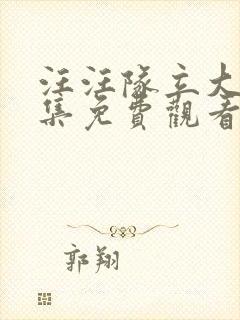 汪汪隊立大
集免費觀看
郭翔